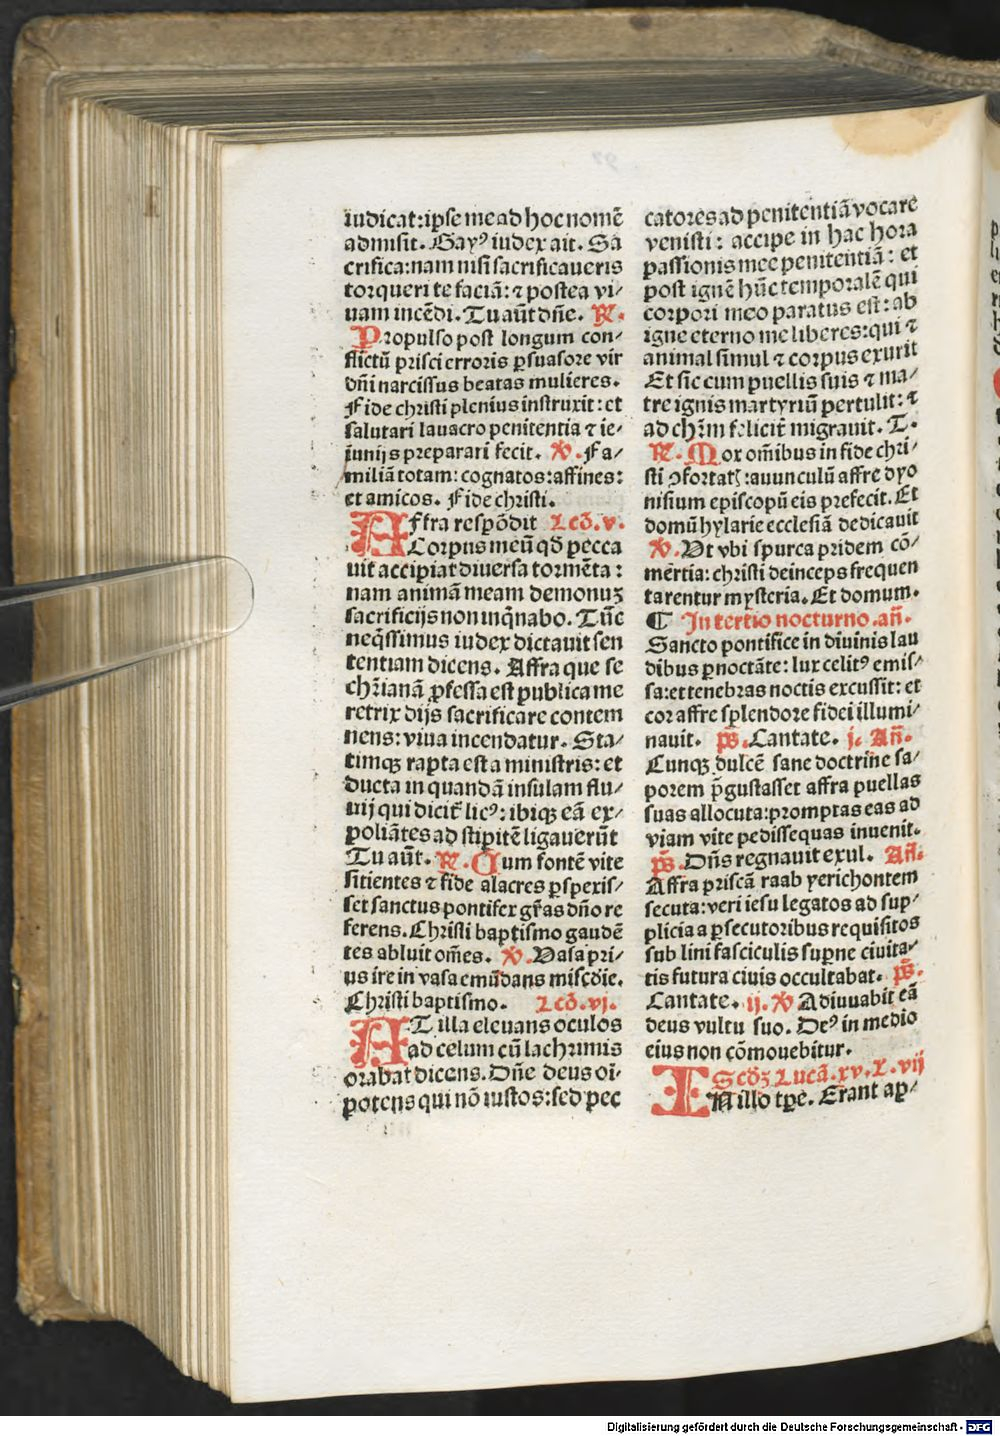 iudicat:ipse me ad hoc nomē
admisit. Gayꝰ iudex ait. Sa
crifica:nam nisi sacrificaueris
torqueri te faciā: ⁊ postea vi⸗
uam incēdi. Tu aūt dn̄e. ℟.
Propulso post longum con⸗
flictū prisci erroris ꝑsuasore vir
dn̄i narcissus beatas mulieres.
Fide christi plenius instruxit: et
salutari lauacro penitentia ⁊ ie⸗
iunijs preparari fecit. ℣. Fa⸗
miliā totam: cognatos:affines:
et amicos. Fide christi.
Affra respōdit Lcō. v.
Corpus meū qd̄ pecca
uit accipiat diuersa tormēta:
nam animā meam demonuꝫ
sacrificijs non inq̄nabo. Tūc
neq̄ssimus iudex dictauit sen
tentiam dicens. Affra que se
chr̄ianā ꝓfessa est publica me
retrix dijs sacrificare contem
nens: viua incendatur. Sta⸗
timqꝫ rapta est a ministris: et
ducta in quandā insulam flu⸗
uij qui dicit̄ licꝰ: ibiqꝫ eā ex⸗
poliātes ad stipitē ligauerūt
Tu aūt. ℟. Cum fontē vite
sitientes ⁊ fide alacres ꝑspexis⸗
set sanctus pontifex gr̄as dn̄o re
ferens. Christi baptismo gaudē
tes abluit om̄es. ℣. Vasa pri⸗
us ire in vasa emūdans mīscdie.
Christi baptismo. Lcō. vj.
AT illa eleuans oculos
ad celum cū lachrimis
orabat dicens. Dn̄e deus oī⸗
potens qui nō iustos: sed pec
catores ad penitentiā vocare
venisti: accipe in hac hora
passionis mee penitentiā: et
post ignē hūc temporalē qui
corpori meo paratus est: ab
igne eterno me liberes: qui ⁊
animal simul ⁊ corpus exurit
Et sic cum puellis suis ⁊ ma⸗
tre ignis martyriū pertulit: ⁊
ad chr̄m felicit̄ migrauit. T.
℟. Mox om̄ibus in fide chri⸗
sti ꝯfortatꝭ: auunculū affre dyo
nisium episcopū eis prefecit. Et
domū hylarie ecclesiā dedicauit
℣. Vt vbi spurca pridem cō⸗
mertia: christi deinceps frequen
tarentur mysteria. Et domum.
¶ In tertio nocturno. an̄.
Sancto pontifice in diuinis lau
dibus ꝑnoctāte: lux celitꝰ emis⸗
sa: et tenebras noctis excussit: et
cor affre splendore fidei illumi⸗
nauit. ps̄. Cantate. j. An̄.
Cunqꝫ dulcē sane doctrine sa⸗
porem p̄gustasset affra puellas
suas allocuta: promptas eas ad
viam vite pedissequas inuenit.
ps̄. Dn̄s regnauit exul. An̄.
Affra priscā raab yerichontem
secuta: veri iesu legatos ad sup⸗
plicia a ꝑsecutoribus requisitos
sub lini fasciculis suꝑne ciuita⸗
tis futura ciuis occultabat. ps̄.
Cantate. ij. ℣ Adiuuabit eā
deus vultu suo. Deꝰ in medio
eius non cōmouebitur.
Scd̄ꝫ Lucā. xv. L. vij
IN illo tp̄e. Erant ap̄⸗
Digitalisierung gefördert durch die Deutsche Forschungsgemeinschaft - DFG